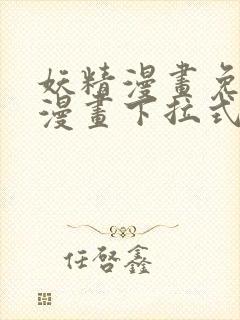 妖精漫畫免
漫畫下拉式
任啓鑫